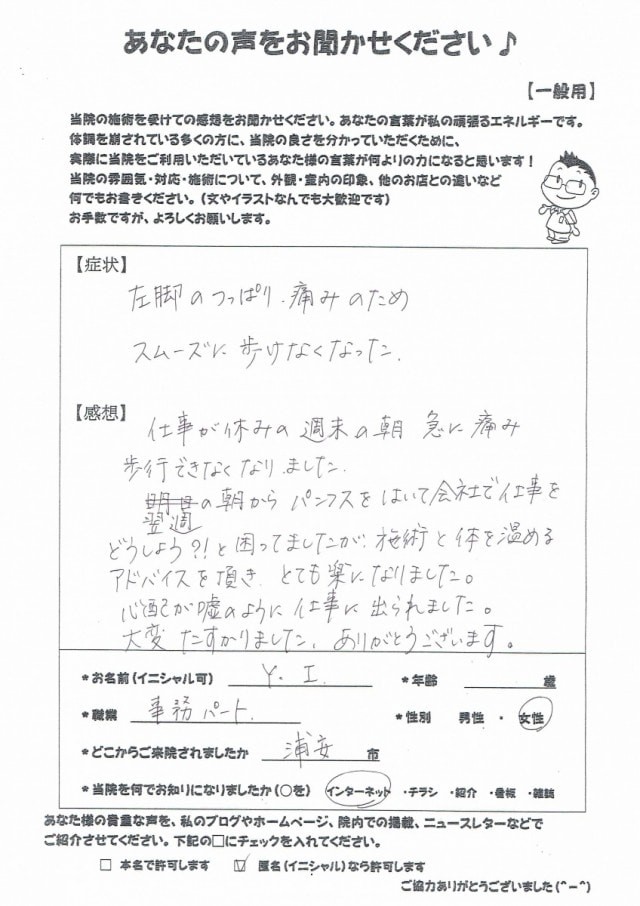 あなたの声をお聞かせください♪
【一般用】
当院の施術を受けての感想をお聞かせください。あなたの言葉が私の頑張るエネルギーです。
体調を崩されている多くの方に、当院の良さを分かっていただくために、
実際に当院をご利用いただいているあなた様の言葉が何よりの力になると思います！
当院の雰囲気・対応・施術について、外観・室内の印象、他のお店との違いなど
何でもお書きください。（文やイラストなんでも大歓迎です）
お手数ですが、よろしくお願いします。
【症状】
左脚のつっぱり、痛みのため
スムーズに歩けなくなった.
【感想】
仕事が休みの週末の朝 急に痛み
歩行できなくなりました.
明日の朝から パンプスをはいて会社で仕事を
翌週
どうしよう?!と困ってましたが、施術と体を温める
アドバイスを頂き とても楽になりました。
心配が嘘のように仕事に出られました。
大変たすかりました、ありがとうございます。
*お名前（イニシャル可） Y. I. *年齢 歳
*職業 事務パート. *性別 男性 ・ 女性
*どこからご来院されましたか 浦安 市
*当院を何でお知りになりましたか（○を） インターネット ・チラシ ・紹介 ・看板 ・雑誌
あなた様の貴重な声を、私のブログやホームページ、院内での掲載、ニュースレターなどで
ご紹介させてください。下記の□にチェックを入れてください。
□ 本名で許可します ☑ 匿名（イニシャル）なら許可します
ご協力ありがとうございました(^-^)